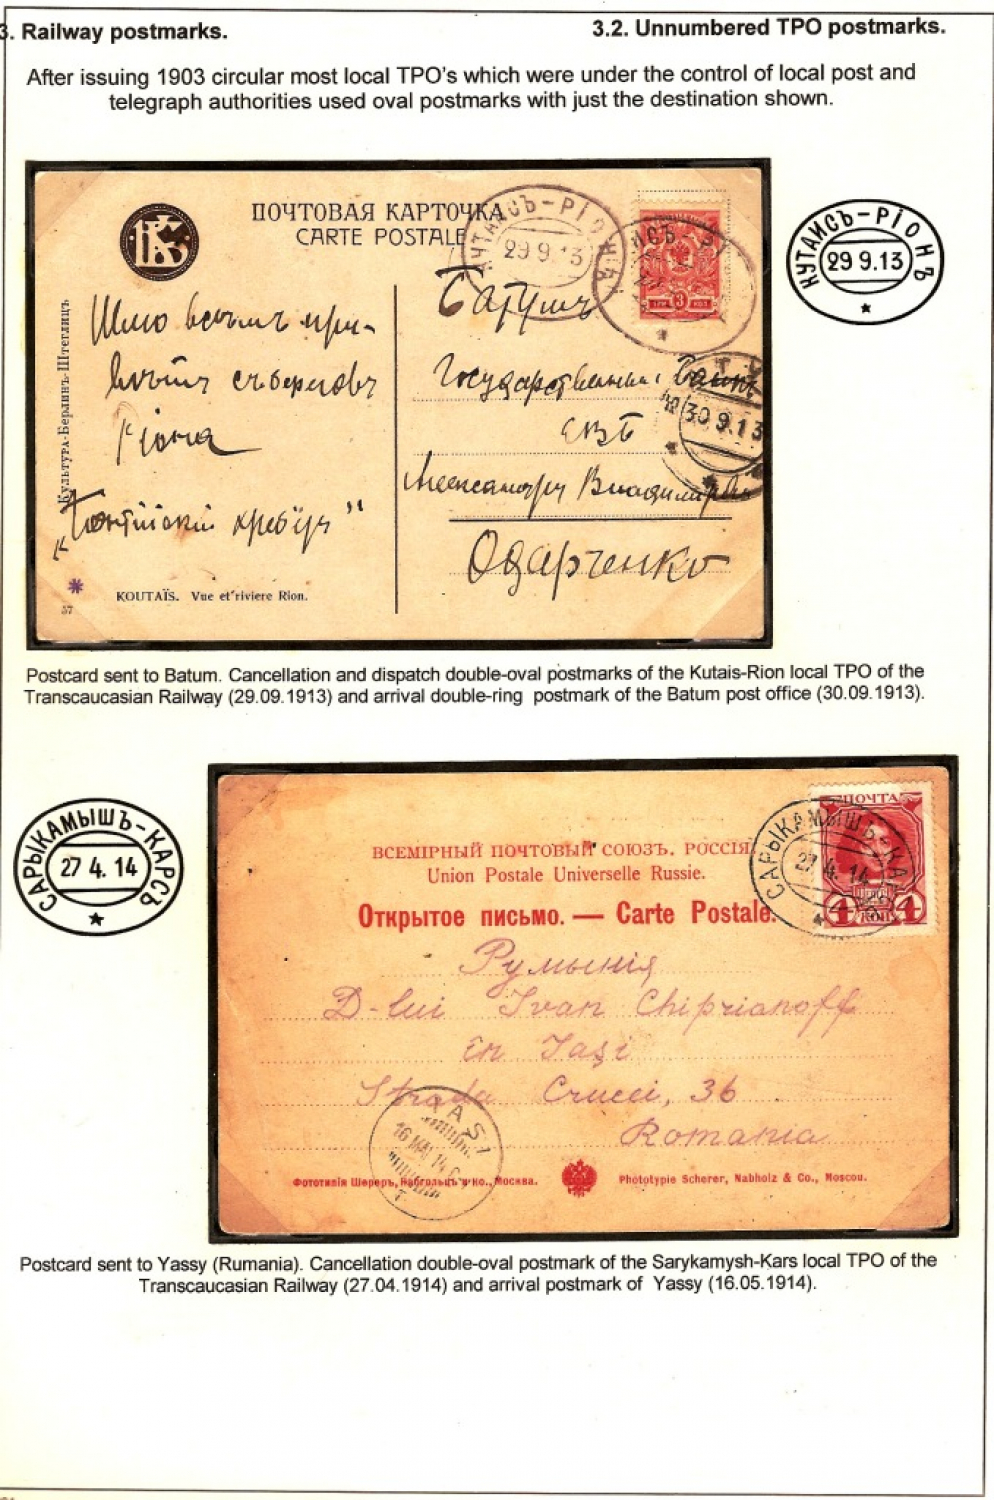 3. Railway postmarks.
3.2. Unnumbered TPO postmarks.
After issuing 1903 circular most local TPO's which were under the control of local post and
telegraph authorities used oval postmarks with just the destination shown.
ПОЧТОВАЯ КАРТОЧКА
CARTE POSTALE
КУТАИСЪ-РІОНЪ
29 9.13
КУТАИСЪ-РІОНЪ
29 9.13
3
Батумъ
Шлю всѣмъ при-
вѣтъ съ береговъ
Ріона
Государственный Банкъ
ЕВБ
30 9.13
Александру Владимиров
Одарченко
Культура-Берлинъ-Штеглицъ
KOUTAÏS. Vue et riviere Rion.
57
Postcard sent to Batum. Cancellation and dispatch double-oval postmarks of the Kutais-Rion local TPO of the
Transcaucasian Railway (29.09.1913) and arrival double-ring postmark of the Batum post office (30.09.1913).
САРЫКАМЫШЪ-КАРСЪ
27 4. 14
ПОЧТА
САРЫКАМЫШЪ-КАР
27 4. 14
4 КОП 4
ВСЕМІРНЫЙ ПОЧТОВЫЙ СОЮЗЪ. РОССІЯ.
Union Postale Universelle Russie.
Открытое письмо. — Carte Postale.
Румынія
D-lui Ivan Chiprianoff
în Iași
Strada Crucei, 36
Romania
IASI
16 MAI 14
Фототипія Шереръ, Набгольцъ и ко., Москва.
Phototypie Scherer, Nabholz & Co., Moscou.
Postcard sent to Yassy (Rumania). Cancellation double-oval postmark of the Sarykamysh-Kars local TPO of the
Transcaucasian Railway (27.04.1914) and arrival postmark of Yassy (16.05.1914).